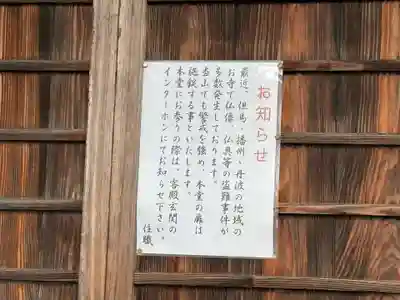 お知らせ
最近、但馬・播州・丹波の地域の
お寺で仏像、仏具等の盗難事件が
多数発生しております。
当山でも警戒を強め、本堂の扉は
施錠する事といたします。
本堂にお参りの際は、客殿玄関の
インターホンにてお知らせ下さい。
住職